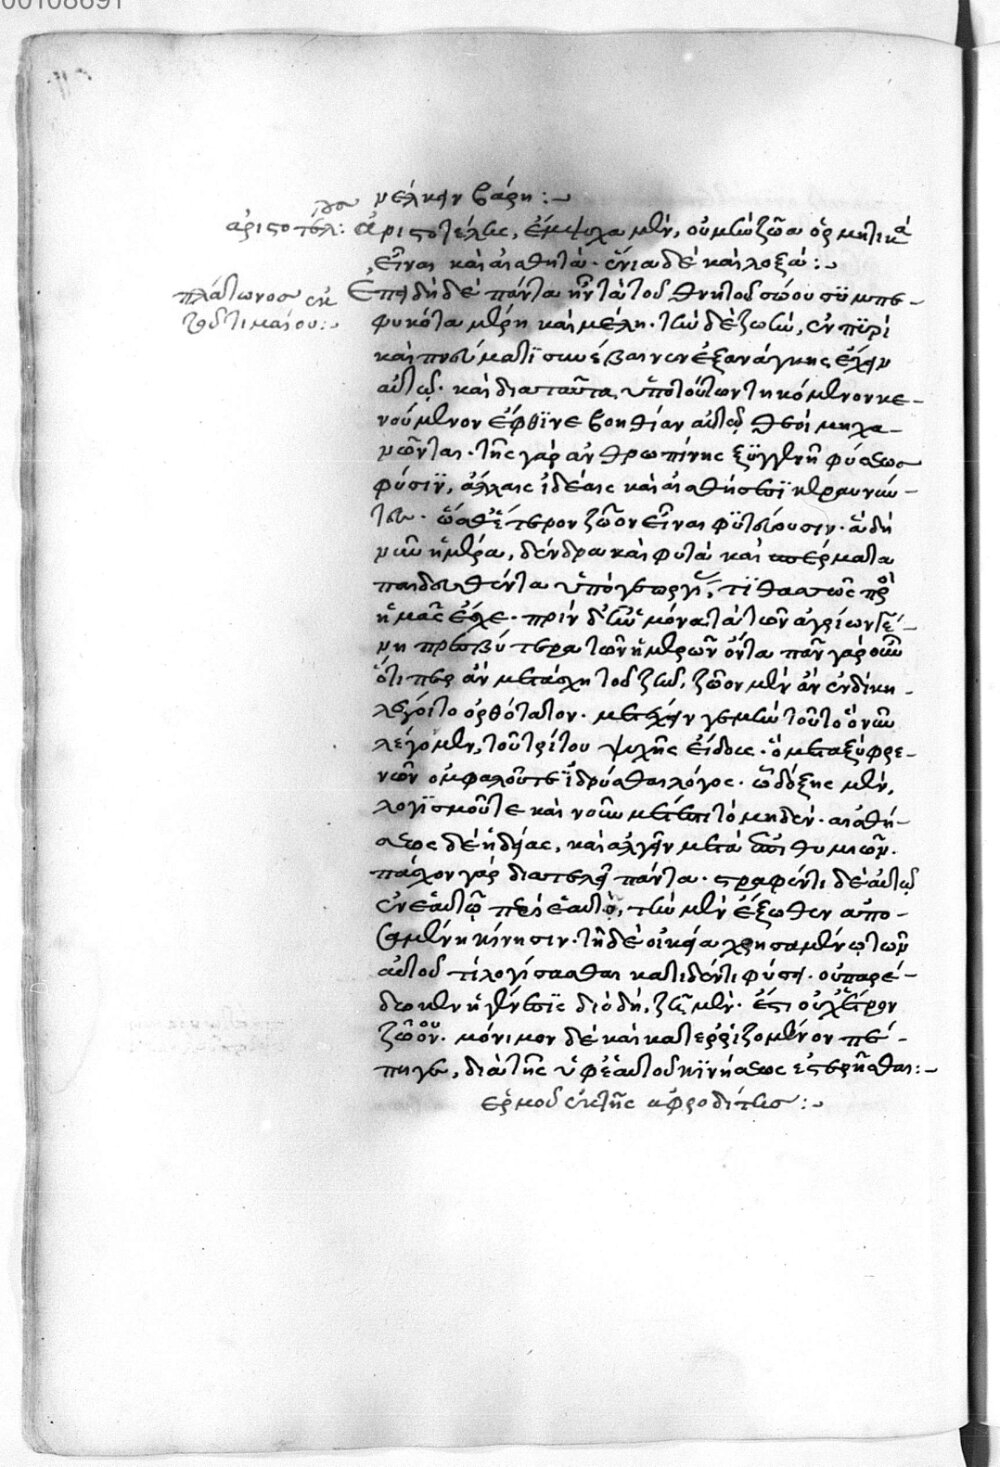 00108691
μέλκειν βάρη :~
ἀριστοτέλους : Ἀριστοτέλης, ἔμψυχα μὲν, οὐ μὴν ζῶα ὁρμητικὰ
εἶναι καὶ αἰσθητά· ἔνια δὲ καὶ λοξά :~
πλάτωνος ἐκ Ἐπειδὴ δὲ πάντα ἦν τὰ τοῦ θνητοῦ ζώου ξυμπε-
τοῦ τιμαίου :~ φυκότα μέρη καὶ μέλη· τὴν δὲ ζωὴν, ἐν πυρὶ
καὶ πνεύματι συνέβαινεν ἐξ ἀνάγκης ἔχειν
αὐτῷ· καὶ διὰ ταῦτα ὑπὸ τούτων τηκόμενον κε-
νούμενον ἔφθινε βοηθίαν αὐτῷ θεοὶ μηχα-
νῶνται· τῆς γὰρ ἀνθρωπίνης ξυγγενῆ φύσεως
φύσιν, ἄλλαις ἰδέαις καὶ αἰσθήσεσι κεραννύν-
τες· ὥσθ' ἕτερον ζῶον εἶναι φυτεύουσιν· ἃ δὴ
νῦν ἥμερα, δένδρα καὶ φυτὰ καὶ σπέρματα
παιδευθέντα ὑπὸ γεωργί, τιθασῶς πρὸς
ἡμᾶς ἔσχε· πρὶν δὲ ἦν μόνα τὰ τῶν ἀγρίων γέ-
νη πρεσβύτερα τῶν ἡμέρων ὄντα πᾶν γὰρ οὖν
ὅτι περ ἂν μετάσχῃ τοῦ ζῆν, ζῶον μὲν ἂν ἐν δίκῃ
λέγοιτο ὀρθότατον· μετέχειν γε μὴν τοῦτο ὃ νῦν
λέγομεν, τοῦ τρίτου ψυχῆς εἴδους· ὃ μεταξὺ φρε-
νῶν ὀμφαλοῦ τε ἱδρύσθαι λόγος· ᾧ δόξης μὲν,
λογισμοῦ τε καὶ νοῦ μέτεστι τὸ μηδέν· αἰσθή-
σεως δὲ ἡδείας, καὶ ἀλγεῖν μετὰ ἐπιθυμιῶν·
πάσχον γὰρ διατελεῖ πάντα· στραφέντι δὲ αὐτῷ
ἐν ἑαυτῷ περὶ ἑαυτὸ, τὴν μὲν ἔξωθεν ἀπο-
σαμένῃ κίνησιν· τῇ δὲ οἰκείᾳ χρησαμένῳ τῶν
αὐτοῦ τι λογίσασθαι κατιδόντι φύσει· οὐ παρέ-
δωκεν ἡ γένεσις διὸ δὴ, ζῇ μὲν· ἔστι οὐχ ἕτερον
ζώου· μόνιμον δὲ καὶ κατερριζομένον πέ-
πηγε, διὰ τῆς ὑφ' ἑαυτοῦ κινήσεως ἐστερῆσθαι :~
ἑρμοῦ ἐκ τῆς ἀφροδίτης :~